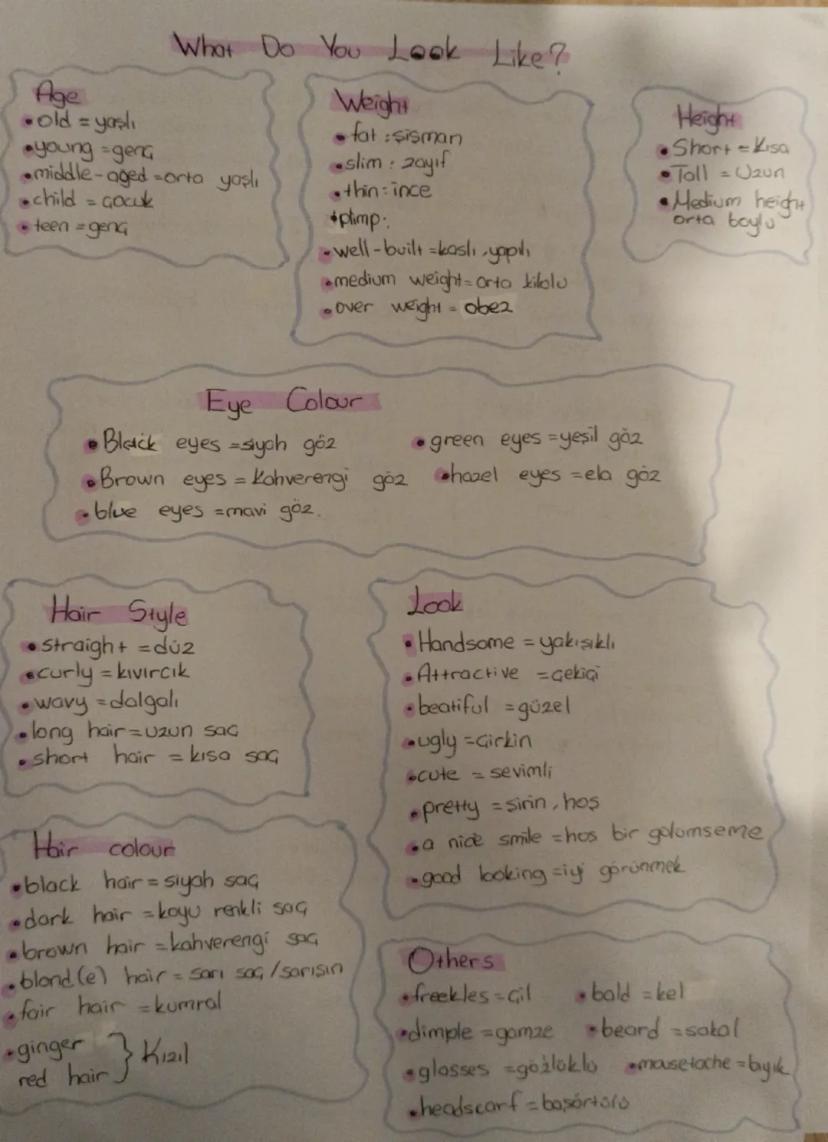 What Do You Look Like?
Age
•old = yaşlı
•young = genç
•middle-aged = orta yaşlı
•child = çocuk
•teen = genç
Weight
•fat : şişman
•slim : zayıf
•thin : ince
•plimp:
•well-built = kaslı, yapılı
•medium weight = orta kilolu
•over weight = obez
Height
•Short = Kısa
•Tall = Uzun
•Medium height
orta boylu
Eye Colour
•Black eyes = siyah göz
•green eyes = yeşil göz
•Brown eyes = Kahverengi göz
•hazel eyes = ela göz
•blue eyes = mavi göz.
Hair Style
•straight = düz
•curly = kıvırcık
•wavy = dalgalı
•long hair = uzun saç
•short hair = kısa saç
Look
•Handsome = yakışıklı
•Attractive = çekiçi
•beatiful = güzel
•ugly = çirkin
•cute = sevimli
•pretty = şirin, hoş
•a nice smile = hoş bir gülümseme
•good looking = iyi görünmek
Hair colour
•black hair = siyah saç
•dark hair = koyu renkli saç
•brown hair = kahverengi saç
•blond(e) hair = sarı saç / sarışın
•fair hair = kumral
•ginger
red hair } Kızıl
Others
•freekles = çil
•bald = kel
•dimple = gamze
•beard = sakal
•glasses = gözlüklü
•mousetache = bıyık
•headscarf = başörtülü